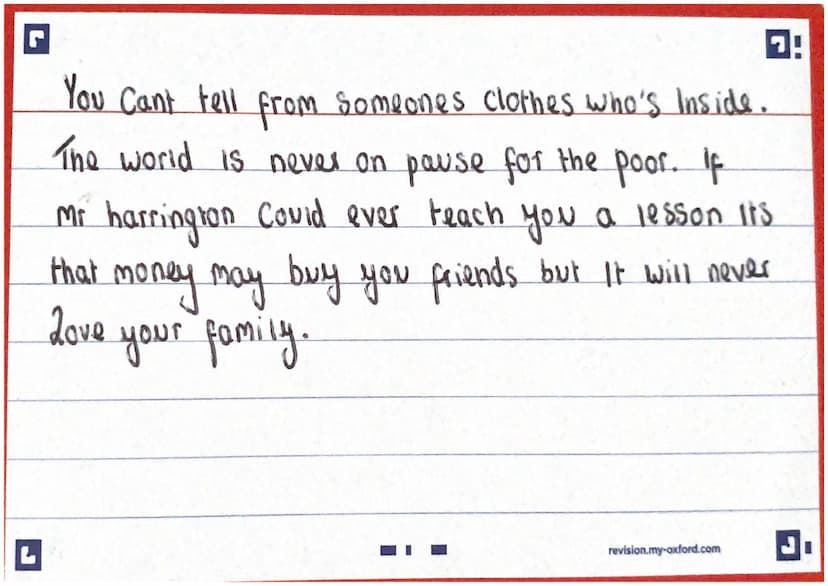 You Cant tell from someones clothes who's Inside.
The world is never on pause for the poor. If
Mr harrington Could ever teach you a lesson Its
that money may buy you friends but It will never
Love your family.
revision.my-oxford.com